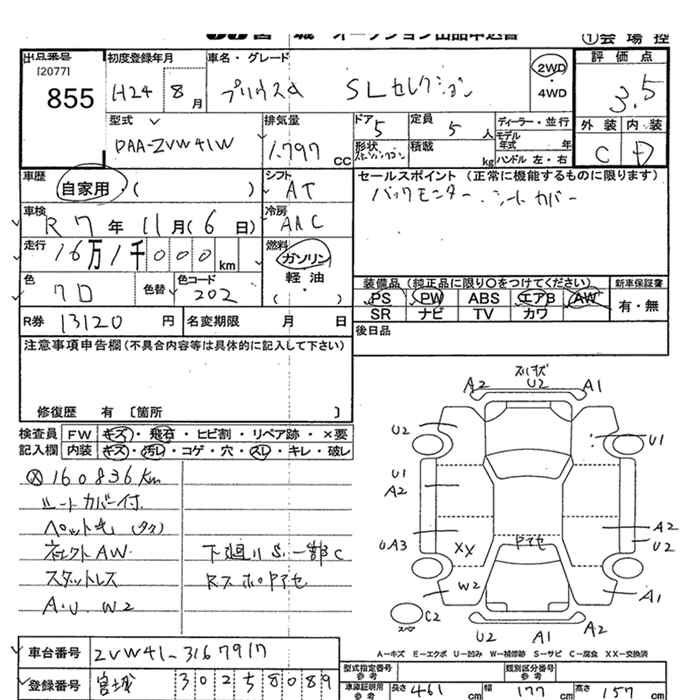 宮城 オークション出品申込書 ①会場控
出品番号
[2077]
855
初度登録年月
H24 8月
車名・グレード
プリウスα SLセレクション
2WD
4WD
評価点
3.5
外装 内装
C D
型式
DAA-ZVW41W
排気量
1.797 CC
ドア 5
定員 5人
形状
積載 kg
ディーラー・並行
モデル年式 年
ハンドル 左・右
車歴
自家用・( )
シフト
AT
セールスポイント (正常に機能するものに限ります)
バックモニター、シートカバー
車検
R7年11月(6日)
冷房
AAC
走行
16万1千000km
燃料
ガソリン
軽油
・( )
色
7D
色替
色コード
202
装備品(純正品に限り○をつけてください)
PS PW ABS エアB AW
SR ナビ TV カワ
新車保証書
有・無
R券 13120円
名変期限 月 日
後日品
注意事項申告欄(不具合内容等は具体的に記入して下さい)
修復歴 有 [箇所 ]
検査員記入欄
FW キズ・飛石・ヒビ割・リペア跡・×要
内装 キズ・汚レ・コゲ・穴・スレ・キレ・破レ
Ⓧ160836Km
シートカバー付
ペット毛(タタ)
社外AW
スタットレス
A.U.W2
下廻りS.一部C
RスホDアセ
A2 U2 A1
U2 U1
U1
A2
UA3
XX
Dアセ
A2
U2
W2
A1
C2
スペア
U2 A1 A2
A-キズ E-エクボ U-凹み W-補修跡 S-サビ C-腐食 XX-交換済
車台番号 ZVW41-3167917
登録番号 宮城 30258089
型式指定番号 参考
類別区分番号 参考
車庫証明用 参考
長さ 461cm
幅 177cm
高さ 157cm